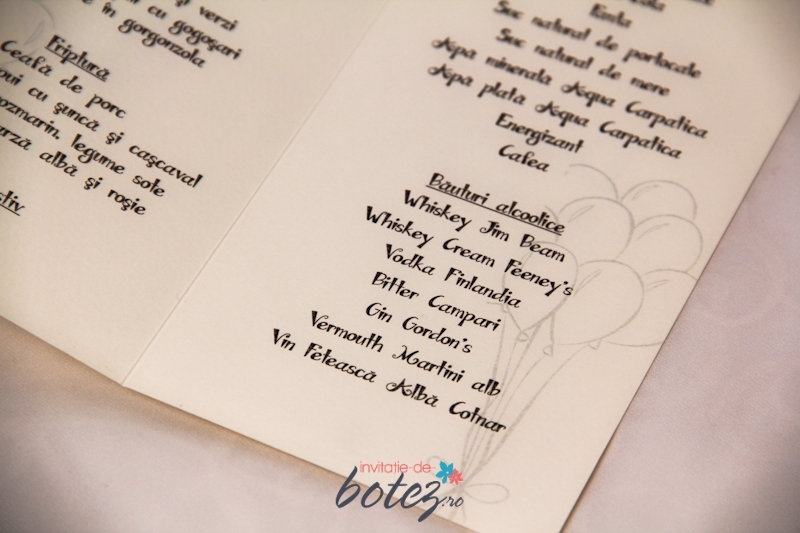 și verzi
cu gogoșari
în gorgonzola
Friptură
Ceafă de porc
pui cu șuncă și cașcaval
rozmarin, legume sote
varză albă și roșie
Suc natural de portocale
Suc natural de mere
Apa minerala Aqua Carpatica
Apa plată Aqua Carpatica
Energizant
Cafea
Băuturi alcoolice
Whiskey Jim Beam
Whiskey Cream Feeney's
Vodka Finlandia
Bitter Campari
Gin Gordon's
Vermouth Martini alb
Vin Fetească Albă Cotnar
invitatie-de-
botez.ro